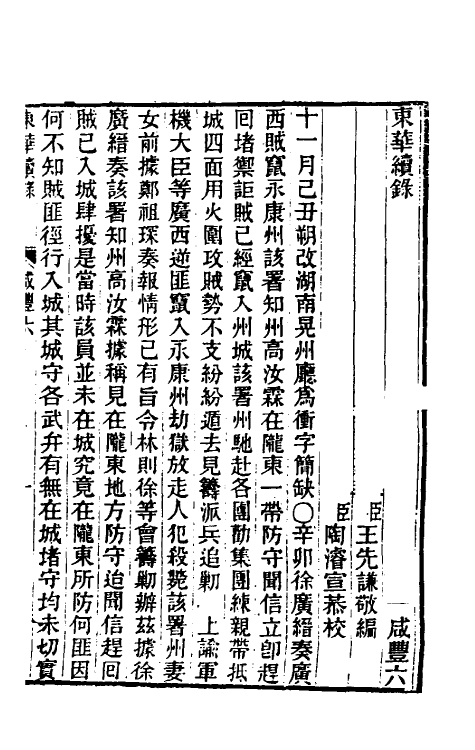 東華續錄
咸豐六
臣王先謙敬編
臣陶濬宣恭校
十一月己丑朔改湖南晃州廳爲衝字簡缺〇辛卯徐廣縉奏廣
西賊竄永康州該署知州高汝霖在隴東一帶防守聞信立卽趕
回堵禦詎賊已經竄入州城該署州馳赴各團勸集團練親帶抵
城四面用火圍攻賊勢不支紛紛遁去見籌派兵追勦 上諭軍
機大臣等廣西逆匪竄入永康州劫獄放走人犯殺斃該署州妻
女前據鄭祖琛奏報情形已有旨令林則徐等會籌勦辦茲據徐
廣縉奏該署知州高汝霖據稱見在隴東地方防守迨聞信趕回
賊已入城肆擾是當時該員並未在城究竟在隴東所防何匪因
何不知賊匪徑行入城其城守各武弁有無在城堵守均未切實
東華續錄 咸豐六 一